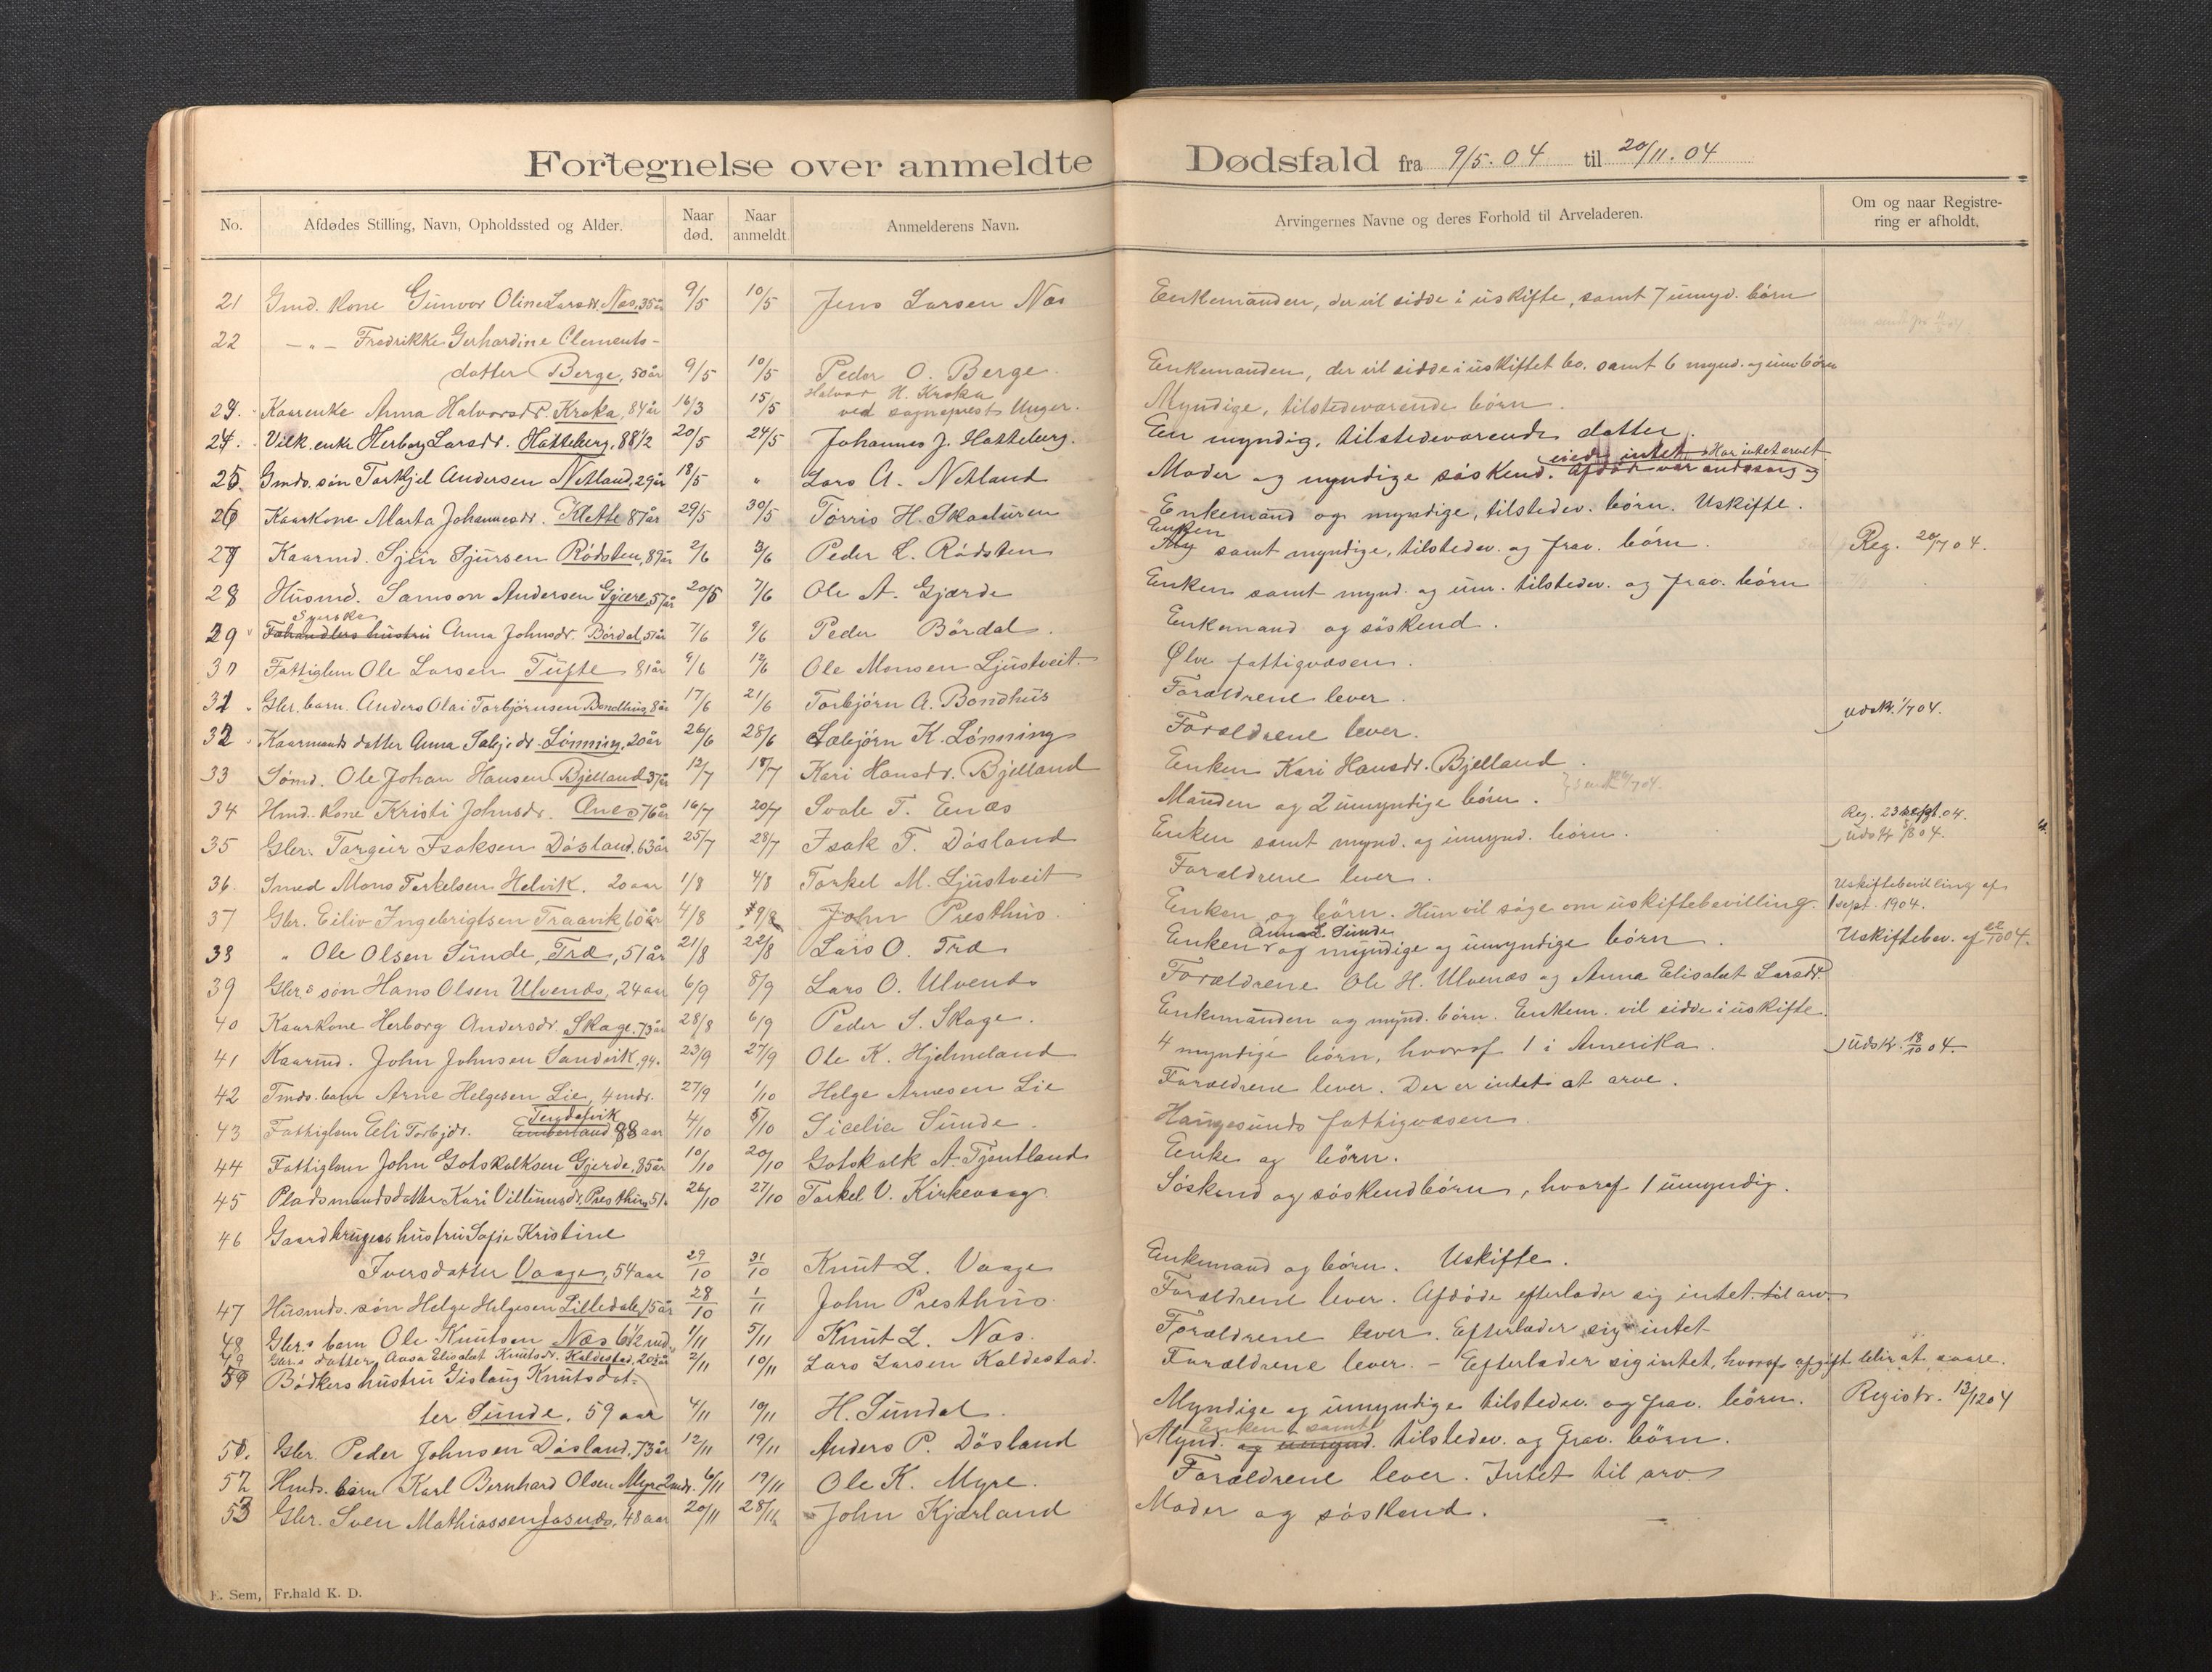 Fortegnelse over anmeldte Dødsfald fra 9/5. 04 til 20/11. 04
No. Afdødes Stilling, Navn, Opholdssted og Alder. Naar død. Naar anmeldt Anmelderens Navn. Arvingernes Navne og deres Forhold til Arveladeren. Om og naar Registrering er afholdt.
21 Gmd. kone Gunvor Oline Larsdr. Næs, 35 år 9/5 10/5 Jens Larsen Næs Enkemanden, der vil sidde i uskifte, samt 7 umynd. børn
22 — " — Fredrikke Gerhardine Clements-
datter Berge, 50 år 9/5 10/5 Peder O. Berge. Enkemanden, der vil sidde i uskiftet bo. samt 6 mynd. og um. børn
23. Kaarenke Anna Halvorsdr. Kroka, 84 år 16/3 15/5 Halvor H. Kroka ved sogneprest Unger. Myndige, tilstedeværende børn.
24. Vilk. enke Herborg Larsdr. Hatteberg, 88 1/2 20/5 24/5 Johannes J. Hatteberg. En myndig, tilstedeværende datter.
25. Gmds. søn Torkjel Andersen Netland, 29 år 18/5 " Lars A. Netland Moder og myndige søskend. Afdøde var sindssvag og eied intet. Har intet arvet
26 Kaarkone Marta Johannesdr. Klette 87 år 29/5 30/5 Tørris H. Skaaturen Enkemand og myndige, tilstedev. børn. Uskifte.
27 Kaarmd. Sjur Sjursen Rødsten, 89 år 2/6 3/6 Peder L. Rødsten Enken samt myndige, tilstedev. og frav. børn. Reg. 20/7 04.
28 Husmd. Samson Andersen Gjære, 57 år 20/5 7/6 Ole A. Gjærde Enken samt mynd. og um. tilstedev. og frav. børn
29 Fehandlers hustru Syerske Anna Johnsdr. Børdal, 51 år 7/6 9/6 Peder Børdal. Enkemand og søskend.
30 Fattiglem Ole Larsen Tufte 81 år 9/6 12/6 Ole Monsen Ljustveit. Ølve fattigvæsen.
31 Gbr. barn. Anders Olai Torbjørnsen Bondhus, 8 år 17/6 21/6 Torbjørn A. Bondhus Forældrene lever.
32 Kaarmands datter Anna Sæbj.dr. Lønning, 20 år 26/6 28/6 Sæbjørn K. Lønning Forældrene lever. Udskr. 1/7 04.
33 Sømd. Ole Johan Hansen Bjelland 37 år 12/7 18/7 Kari Hansdr. Bjelland Enken Kari Hansdr. Bjelland.
34 Hmd. kone Kristi Johnsdr. Enes 76 år 16/7 20/7 Svale T. Enæs Manden og 2 umyndige børn.
35 Gbr. Torgeir Isaksen Døsland. 63 år 25/7 28/7 Isak T. Døsland Enken samt mynd. og umynd. børn. Reg. 23 sept. 04. Udskr. 3/8 04.
36. Smed Mons Torkelsen Helvik. 20 aar 1/8 4/8 Torkel M. Ljustveit Forældrene lever.
37 Gbr. Eiliv Ingebrigtsen Traavik 60 år 4/8 9/8 John Presthus. Enken og børn. Hun vil søge om uskiftebevilling. Uskiftebevilling af 1 sept. 1904.
38 " Ole Olsen Sunde, Træ, 51 år 21/8 22/8 Lars O. Træ Enken Anna L. Sunde og myndige og umyndige børn. Uskiftebev. af 22/10 04.
39 Gbr.s søn Hans Olsen Ulvenæs, 24 aar 6/9 8/9 Lars O. Ulvenes Forældrene Ole H. Ulvenæs og Anna Elisabet Larsdr.
40 Kaarkone Herborg Andersdr. Skage, 73 år 28/8 6/9 Peder S. Skage. Enkemanden og mynd. børn. Enkem. vil sidde i uskifte.
41 Kaarmd. John Johnsen Sandvik, 94. 23/9 27/9 Ole K. Hjelmeland 4 myndige børn, hvoraf 1 i Amerika. Udskr. 18/10 04.
42 Tmds. barn Arne Helgesen Lie, 4 mdr. 27/9 1/10 Helge Arnesen Lie Forældrene lever. Der er intet at arve.
43 Fattiglem Eli Torbjdr. Emberland Tungdalvik 88 aar 4/10 5/10 Sicelia Sunde. Haugesunds fattigvæsen.
44 Fattiglem John Gotskalksen Gjerde, 85 år 10/10 20/10 Gotskalk A. Tjentland Enke og børn.
45 Pladsmandsdatter Kari Villumsdr. Presthus 51. 26/10 27/10 Torkel V. Kirkevaag. Søskend og søskendbørn, hvoraf 1 umyndig.
46 Gaardbrugers hustru Sofie Kristine
Iversdatter Vaage, 54 aar 29/10 31/10 Knut L. Vaage Enkemand og børn. Uskifte.
47 Husmds. søn Helge Helgesen Lilledale, 15 år 28/10 1/11 John Presthus. Forældrene lever. Afdøde efterlader sig intet til arv.
48 Gbr.s barn Ole Knutsen Næs 6 1/2 md. 1/11 5/11 Knut L. Næs. Forældrene lever. Efterlader sig intet
49 Gbr.s datter Aasa Elisabet Knutsdr. Kaldestad, 20 år 2/11 10/11 Lars Larsen Kaldestad. Forældrene lever. – Efterlader sig intet, hvoraf afgift blir at svare.
50 Bødkers hustru Gislaug Knutsdat-
ter Sunde, 59 aar 4/11 10/11 H. Sundal. Myndige og umyndige tilstedev. og frav. børn. Registr. 13/12 04
51. Gbr. Peder Johnsen Døsland, 73 år 12/11 19/11 Anders P. Døsland Enken samt Mynd. og umynd. tilstedev. og frav. børn.
52 Hmds. barn Karl Bernhard Olsen Myre 2 mdr. 6/11 19/11 Ole K. Myre. Forældrene lever. Intet til arv.
53 Gbr. Sven Mathiassen Fosnæs, 48 aar 20/11 28/11 John Kjærland Moder og søskend.
E. Sem, Fr.hald K. D.